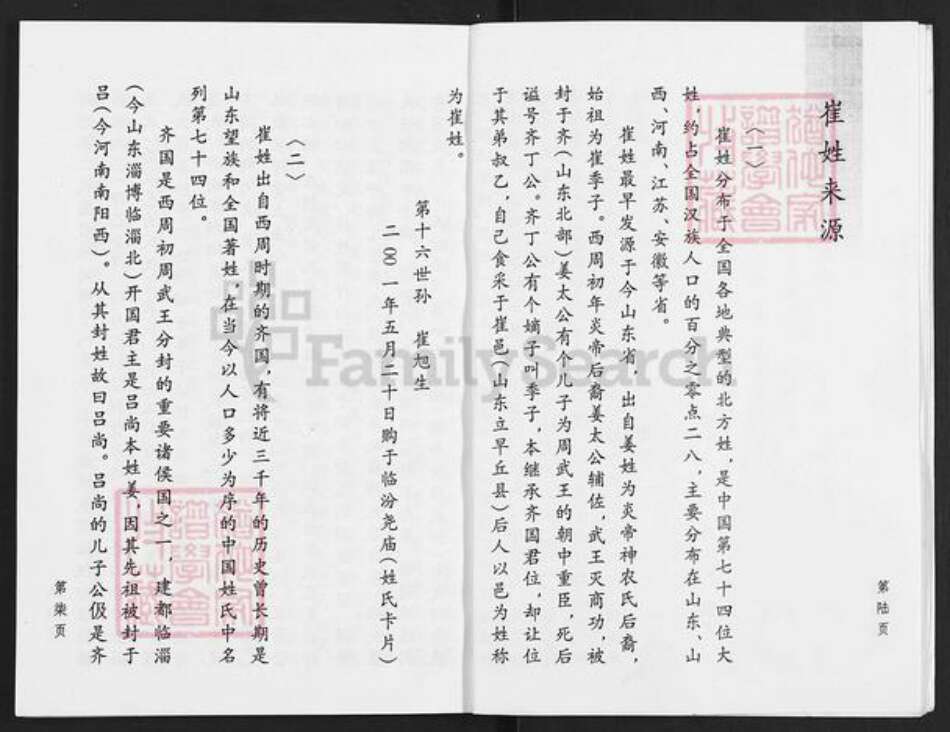 崔姓来源
（一）
崔姓分布于全国各地典型的北方姓，是中国第七十四位大
姓，约占全国汉族人口的百分之零点二八，主要分布在山东、山
西、河南、江苏、安徽等省。
崔姓最早发源于今山东省，出自姜姓为炎帝神农氏后裔，
始祖为崔季子。西周初年炎帝后裔姜太公辅佐，武王灭商功，被
封于齐（山东北部）姜太公有个儿子为周武王的朝中重臣，死后
谥号齐丁公。齐丁公有个嫡子叫季子，本继承齐国君位，却让位
于其弟叔乙，自己食采于崔邑（山东立早丘县）后人以邑为姓称
为崔姓。
第陆页
第十六世孙 崔旭生
二〇〇一年五月二十日购于临汾尧庙（姓氏卡片）
（二）
崔姓出自西周时期的齐国，有将近三千年的历史曾长期是
山东望族和全国著姓，在当今以人口多少为序的中国姓氏中名
列第七十四位。
齐国是西周初周武王分封的重要诸侯国之一，建都临淄
（今山东淄博临淄北）开国君主是吕尚本姓姜，因其先祖被封于
吕（今河南南阳西）。从其封姓故曰吕尚。吕尚的儿子公伋是齐
第柒页
FamilySearch